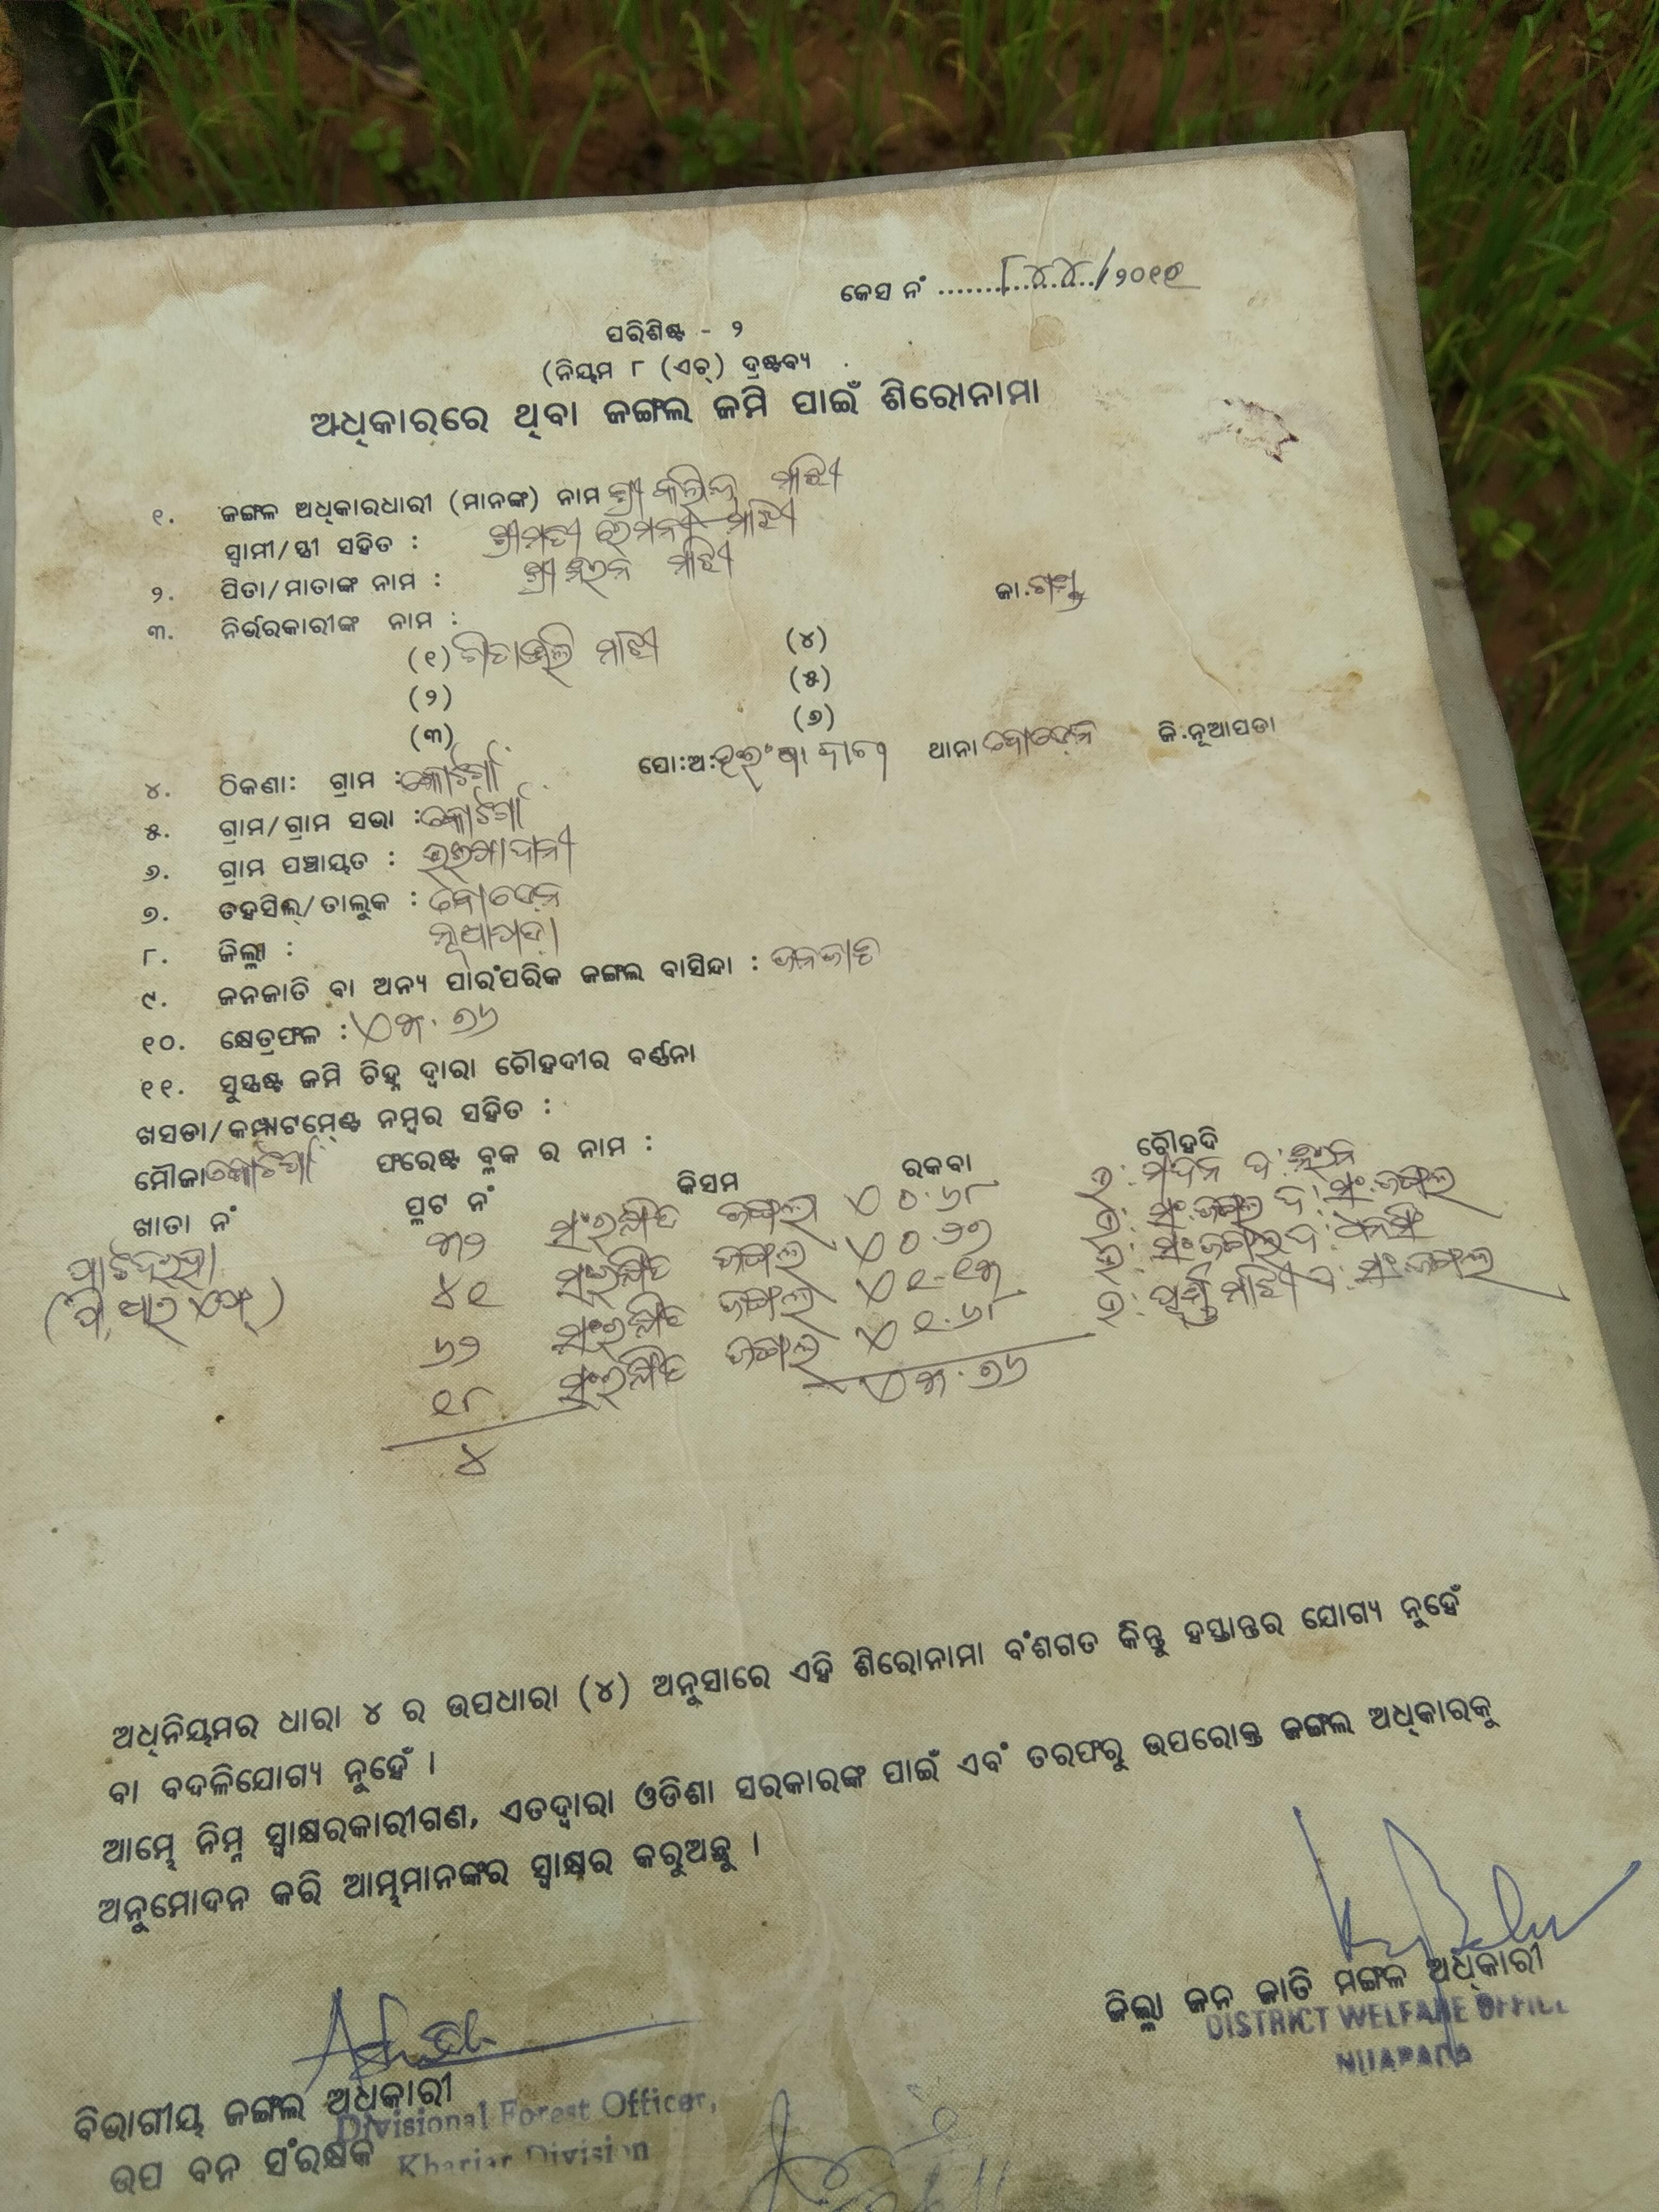 କେସ ନଂ ........୮୪୪../୨୦୧୧
ପରିଶିଷ୍ଟ - ୨
(ନିୟମ ୮ (ଏଚ୍) ଦ୍ରଷ୍ଟବ୍ୟ
ଅଧିକାରରେ ଥିବା ଜଙ୍ଗଲ ଜମି ପାଇଁ ଶିରୋନାମା
୧. ଜଙ୍ଗଳ ଅଧିକାରଧାରୀ (ମାନଙ୍କ) ନାମ ଶ୍ରୀ କଲିନ୍ଦ୍ର ମାଝୀ
ସ୍ୱାମୀ/ସ୍ତ୍ରୀ ସହିତ : ଶ୍ରୀମତୀ ହେମନ୍ତୀ ମାଝୀ
୨. ପିତା/ମାତାଙ୍କ ନାମ : ଶ୍ରୀ ମାଝୀ ଜା.
୩. ନିର୍ଭରକାରୀଙ୍କ ନାମ :
(୧) ଗୀତାଞ୍ଜଳି ମାଝୀ (୪)
(୨) (୫)
(୩) (୬)
୪. ଠିକଣା: ଗ୍ରାମ : କୋଟଗାଁ ପୋ:ଅ: ଥାନା ବୋଡେନ ଜି.ନୂଆପଡା
୫. ଗ୍ରାମ/ଗ୍ରାମ ସଭା : କୋଟଗାଁ
୬. ଗ୍ରାମ ପଞ୍ଚାୟତ :
୭. ତହସିଲ୍/ତାଲୁକ : ବୋଡେନ
୮. ଜିଲ୍ଲା : ନୂଆପଡା
୯. ଜନଜାତି ବା ଅନ୍ୟ ପାରଂପରିକ ଜଙ୍ଗଲ ବାସିନ୍ଦା : ଜନଜାତି
୧୦. କ୍ଷେତ୍ରଫଳ : ଏ ୩.୭୬
୧୧. ସୁସ୍ପଷ୍ଟ ଜମି ଚିହ୍ନ ଦ୍ୱାରା ଚୌହଦୀର ବର୍ଣ୍ଣନା
ଖସଡା/କମ୍ପାଟମେଣ୍ଟ ନମ୍ବର ସହିତ :
ମୌଜା କୋଟଗାଁ ଫରେଷ୍ଟ ବ୍ଲକ ର ନାମ :
ଖାତା ନଂ ପ୍ଲଟ ନଂ କିସମ ରକବା ଚୌହଦି
ପାଟଦରହା ୩୨ ସଂରକ୍ଷିତ ଜଙ୍ଗଲ ଏ ୦.୬୮ ଉ: ମଦନ ଦ:
(ପି.ଆର.ଏଫ୍) ୪୧ ସଂରକ୍ଷିତ ଜଙ୍ଗଲ ଏ ୦.୨୭ ଉ: ସଂ.ଜଙ୍ଗଲ ଦ: ସଂ.ଜଙ୍ଗଲ
୬୨ ସଂରକ୍ଷିତ ଜଙ୍ଗଲ ଏ ୧.୧୩ ଉ: ସଂ.ଜଙ୍ଗଲ ଦ: ଧନସିଂ
୧୮ ସଂରକ୍ଷିତ ଜଙ୍ଗଲ ଏ ୧.୬୮ ଉ: ମାଝୀ ଦ: ସଂ.ଜଙ୍ଗଲ
୪ ଏ ୩.୭୬
ଅଧିନିୟମର ଧାରା ୪ ର ଉପଧାରା (୪) ଅନୁସାରେ ଏହି ଶିରୋନାମା ବଂଶଗତ କିନ୍ତୁ ହସ୍ତାନ୍ତର ଯୋଗ୍ୟ ନୁହେଁ
ବା ବଦଳିଯୋଗ୍ୟ ନୁହେଁ ।
ଆମ୍ଭେ ନିମ୍ନ ସ୍ୱାକ୍ଷରକାରୀଗଣ, ଏତଦ୍ୱାରା ଓଡିଶା ସରକାରଙ୍କ ପାଇଁ ଏବଂ ତରଫରୁ ଉପରୋକ୍ତ ଜଙ୍ଗଲ ଅଧିକାରକୁ
ଅନୁମୋଦନ କରି ଆମ୍ଭମାନଙ୍କର ସ୍ୱାକ୍ଷର କରୁଅଛୁ ।
ଜିଲ୍ଲା ଜନ ଜାତି ମଙ୍ଗଳ ଅଧିକାରୀ
DISTRICT WELFARE OFFICE
NUAPADA
ବିଭାଗୀୟ ଜଙ୍ଗଲ ଅଧିକାରୀ
Divisional Forest Officer,
ଉପ ବନ ସଂରକ୍ଷକ
Khariar Division